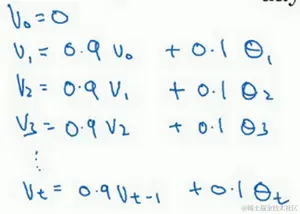 V₀ = 0
V₁ = 0.9 V₀ + 0.1 θ₁
V₂ = 0.9 V₁ + 0.1 θ₂
V₃ = 0.9 V₂ + 0.1 θ₃
⋮
Vt = 0.9 Vt-1 + 0.1 θt
@稀土掘金技术社区